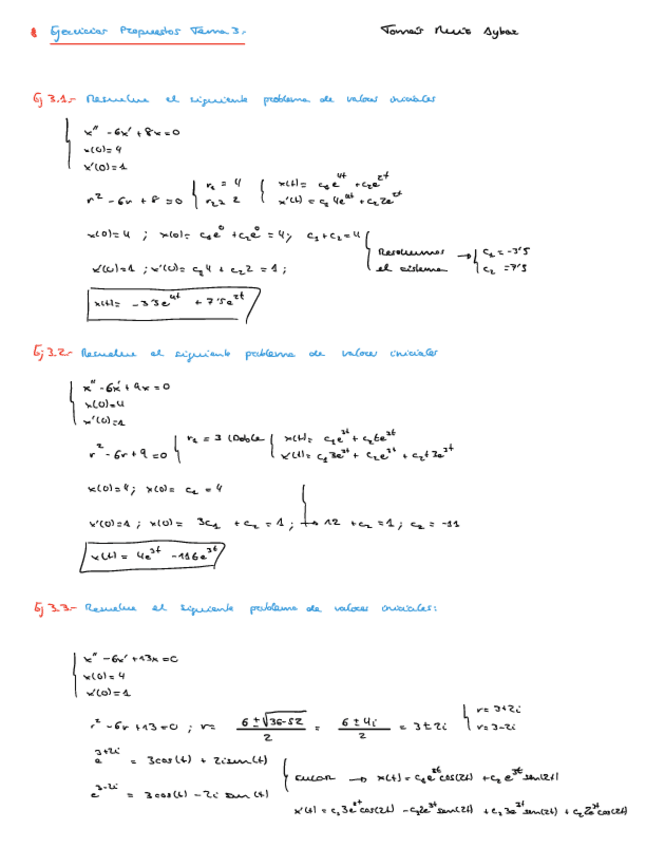 Ejercicios Propuestos Tema 3.
Ej 3.1.- Resuelve el siguiente problema de valores iniciales
x'' - 6x' + 8x = 0
x(0) = 4
x'(0) = 1
r² - 6r + 8 = 0 { r₁ = 4 r₂ = 2 { x(t) = c₁e^4t + c₂e^2t
x'(t) = c₁4e^4t + c₂2e^2t
x(0) = 4 ; x(0) = c₁e^0 + c₂e^0 = 4; c₁ + c₂ = 4
x'(0) = 1 ; x'(0) = c₁4 + c₂2 = 1;
Resolvemos el sistema → c₁ = -3'5 c₂ = 7'5
x(t) = -3'5e^4t + 7'5e^2t
Ej 3.2.- Resuelve el siguiente problema de valores iniciales
x'' - 6x' + 9x = 0
x(0) = 4
x'(0) = 1
r² - 6r + 9 = 0 { r₁ = 3 (Doble { x(t) = c₁e^3t + c₂te^3t
x'(t) = c₁3e^3t + c₂e^3t + c₂t3e^3t
x(0) = 4; x(0) = c₁ = 4
x'(0) = 1 ; x(0) = 3c₁ + c₂ = 1 ; → 12 + c₂ = 1 ; c₂ = -11
x(t) = 4e^3t - 11te^3t
Ej 3.3.- Resuelve el siguiente problema de valores iniciales:
x'' - 6x' + 13x = 0
x(0) = 4
x'(0) = 1
r² - 6r + 13 = 0 ; r = (6 ± √36-52)/2 = (6 ± 4i)/2 = 3 ± 2i { r = 3+2i r = 3-2i
e^3+2i = 3cos(t) + 2i sen(t)
e^3-2i = 3cos(t) - 2i sen(t)
EULER → x(t) = c₁e^3t cos(2t) + c₂e^3t sen(2t)
x'(t) = c₁3e^3t cos(2t) - c₁2e^3t sen(2t) + c₂3e^3t sen(2t) + c₂2e^3t cos(2t)